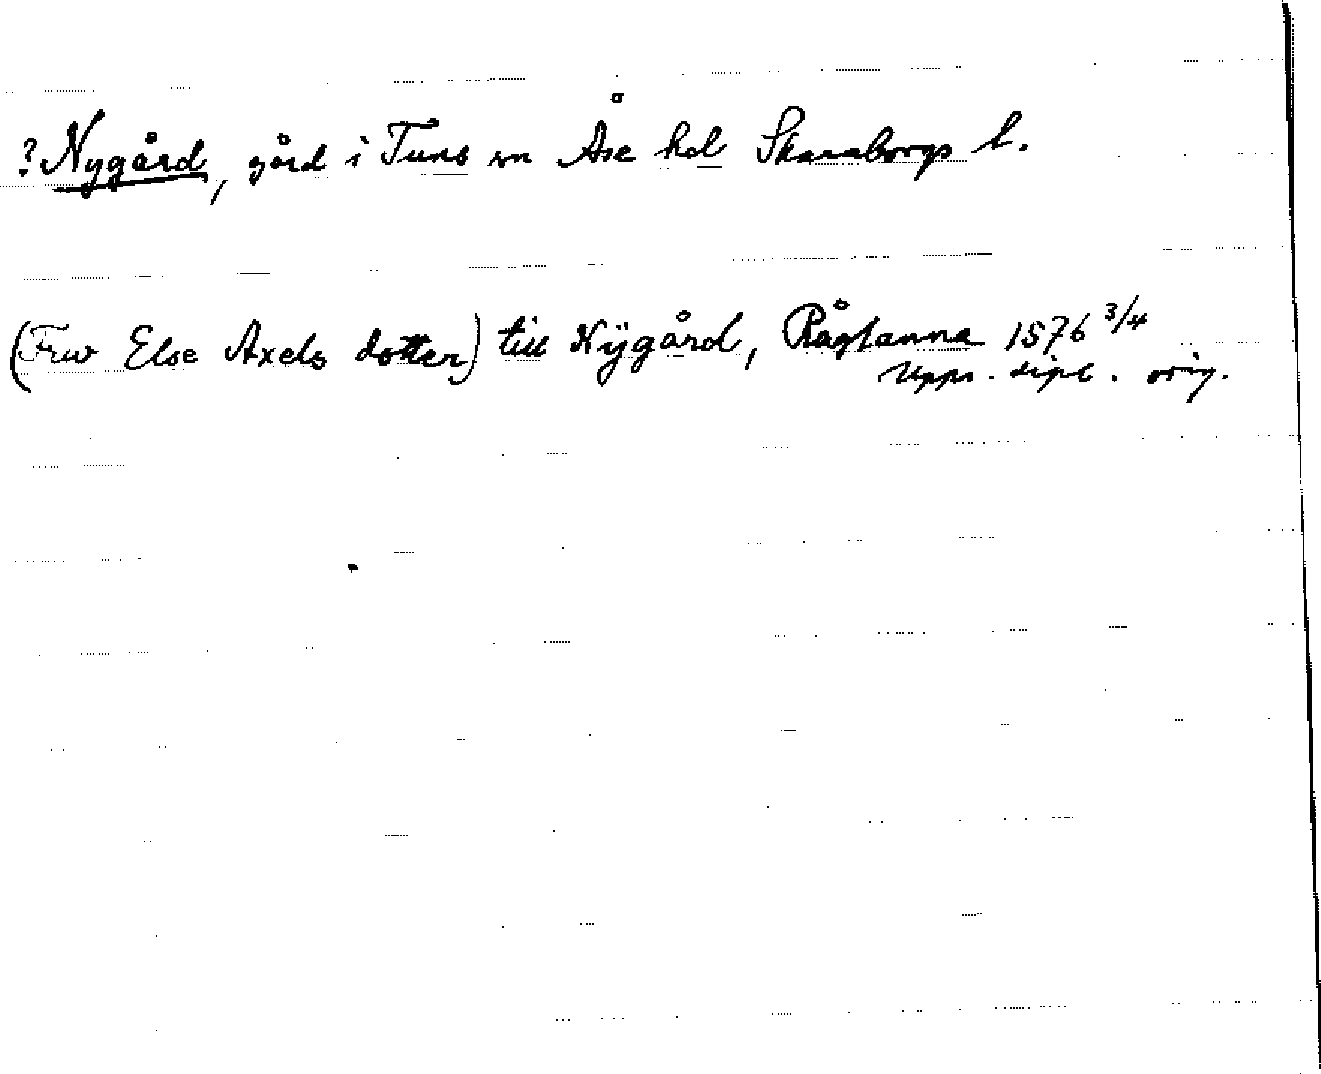 ?Nygård, gård i Tuns sn Åse hd Skaraborgs l.
(Frw Else Axels dotter) till Nÿgård, Rågtanna 1576 3/4
Upps. dipl. orig.